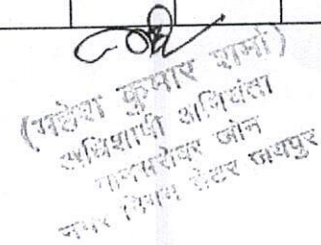 (महेश कुमार शर्मा)
अधिशाषी अभियंता
मानसरोवर जोन
नगर निगम ग्रेटर जयपुर